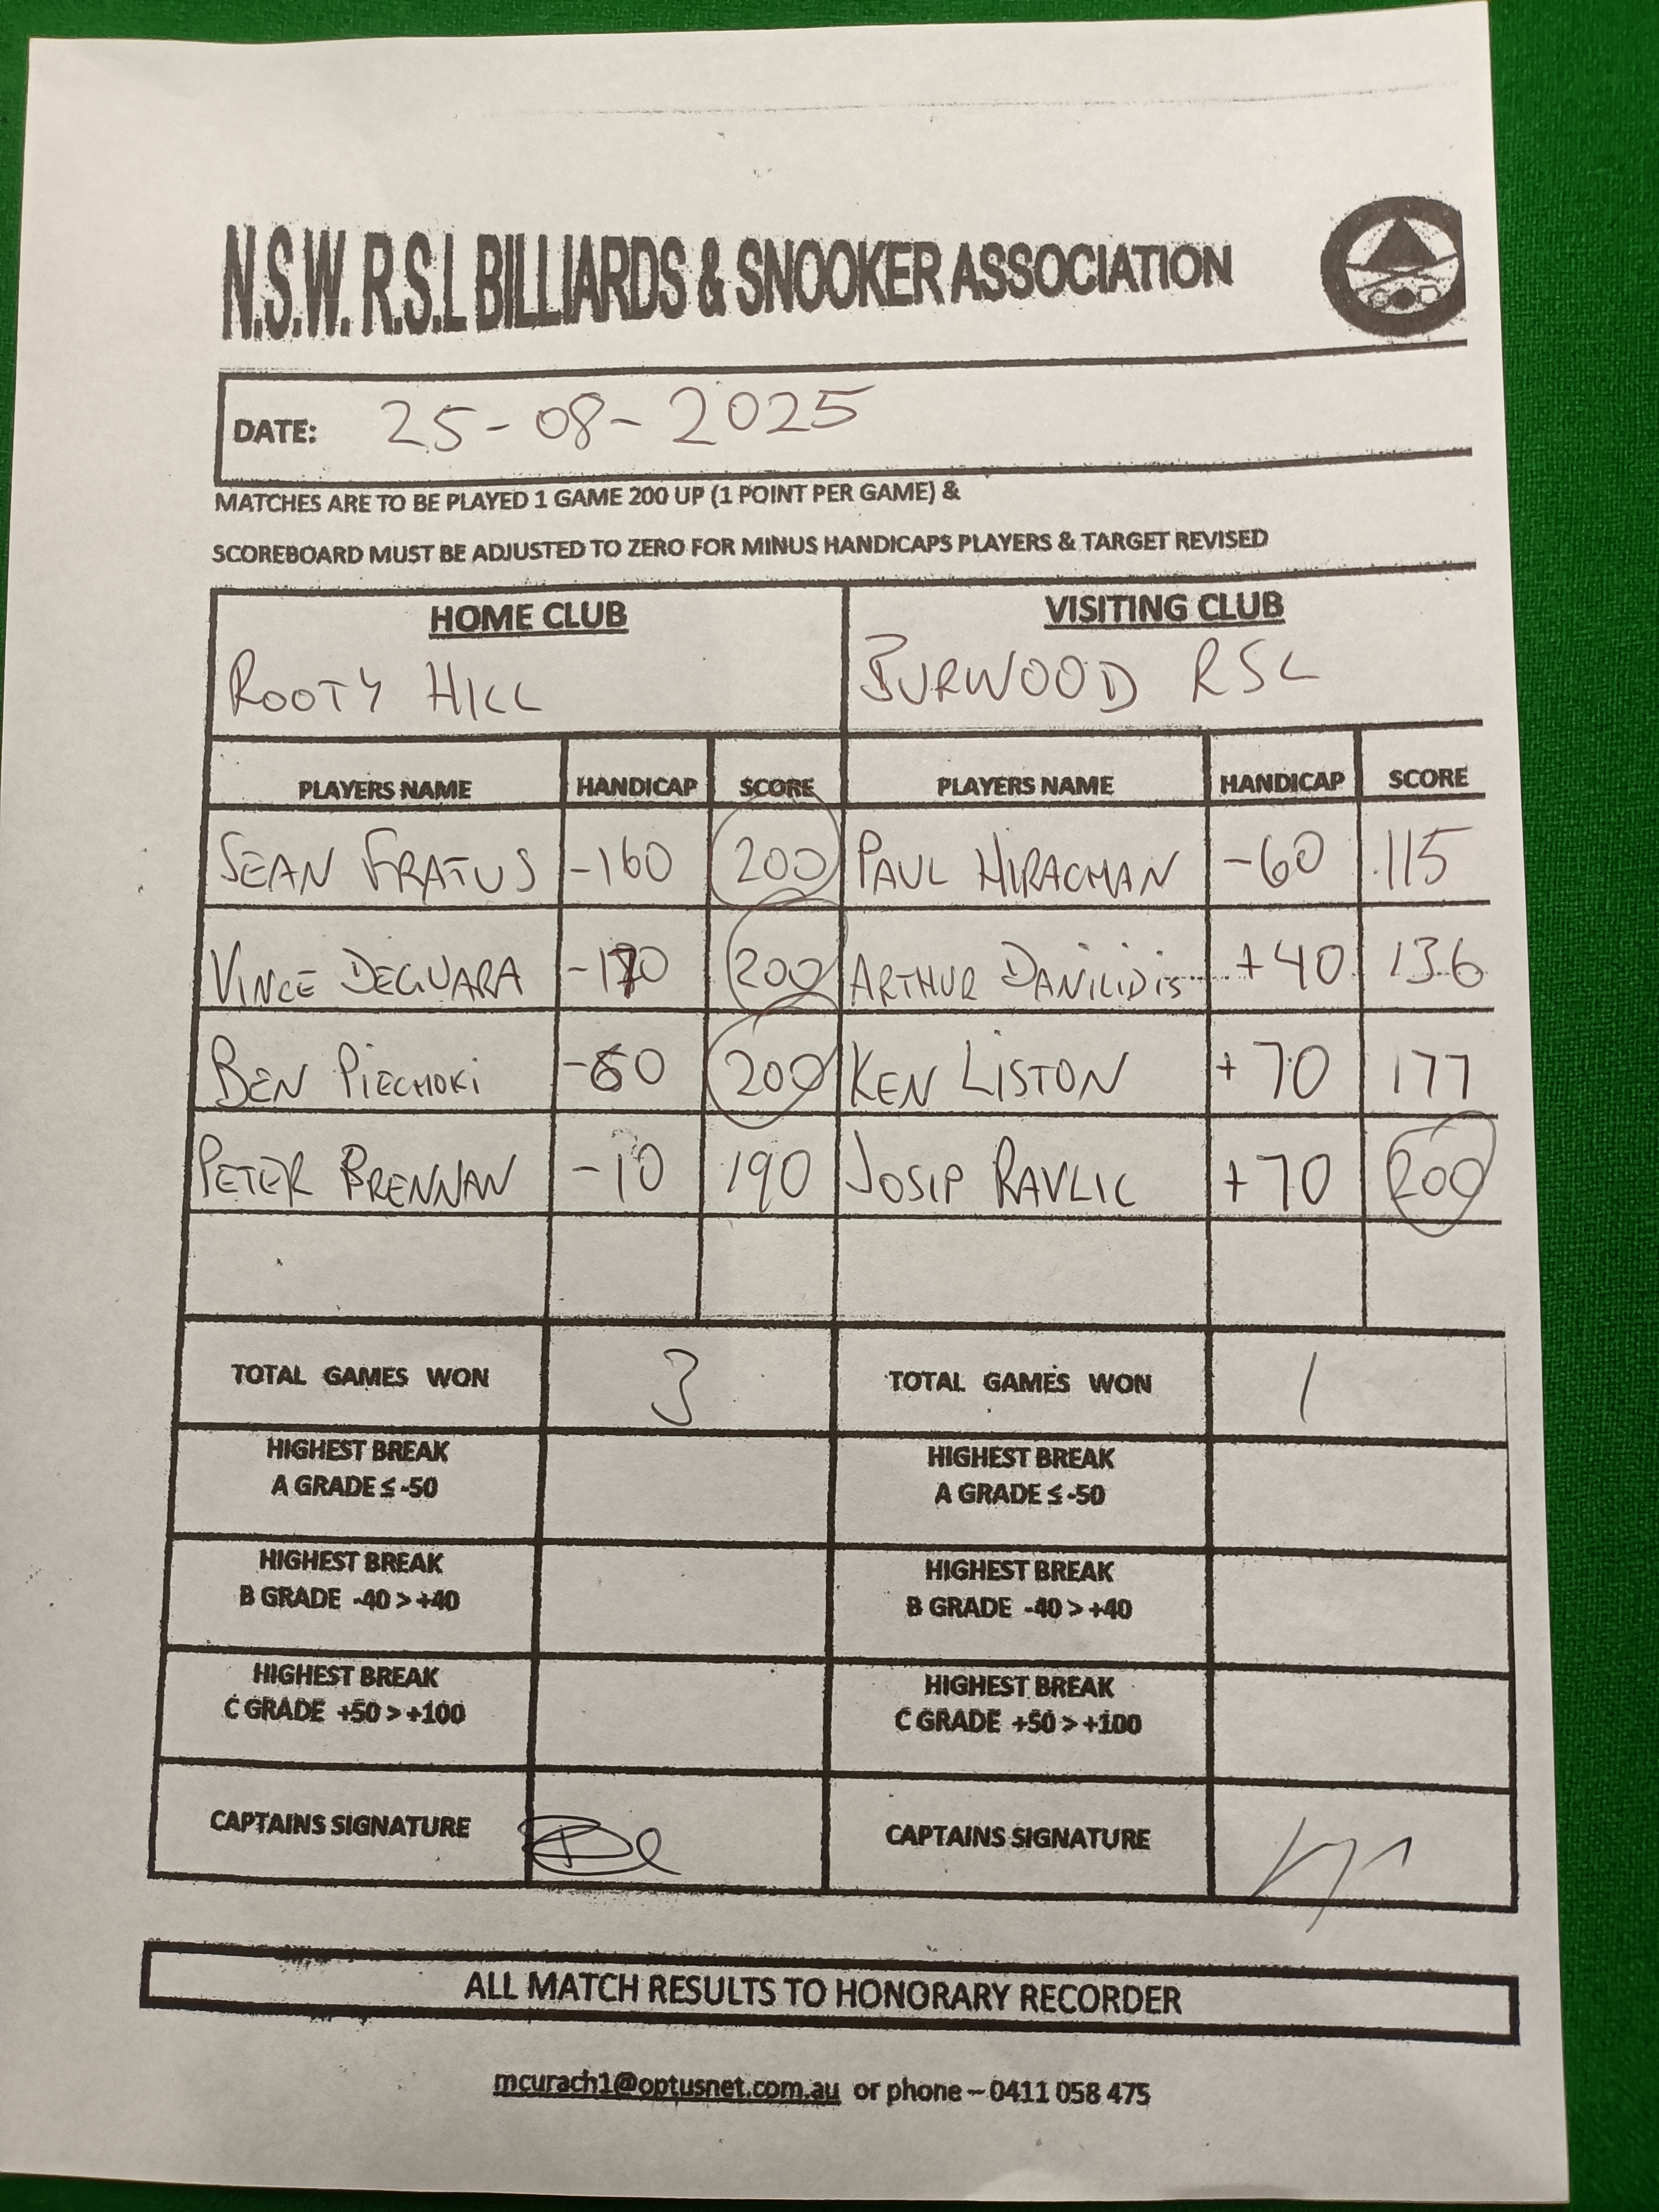 N.S.W. R.S.L BILLIARDS & SNOOKER ASSOCIATION
DATE: 25-08-2025
MATCHES ARE TO BE PLAYED 1 GAME 200 UP (1 POINT PER GAME) &
SCOREBOARD MUST BE ADJUSTED TO ZERO FOR MINUS HANDICAPS PLAYERS & TARGET REVISED
HOME CLUB VISITING CLUB
ROOTY HILL BURWOOD RSL
PLAYERS NAME HANDICAP SCORE PLAYERS NAME HANDICAP SCORE
SEAN FRATUS -160 200 PAUL -60 115
VINCE DEGUARA 200 ARTHUR DANILIDIS +40 136
BEN PIECHOKI 200 KEN LISTON +70 177
PETER BRENNAN -10 190 JOSIP RAVLIC +70 200
TOTAL GAMES WON 3 TOTAL GAMES WON 1
HIGHEST BREAK HIGHEST BREAK
A GRADE ≤ -50 A GRADE ≤ -50
HIGHEST BREAK HIGHEST BREAK
B GRADE -40 > +40 B GRADE -40 > +40
HIGHEST BREAK HIGHEST BREAK
C GRADE +50 > +100 C GRADE +50 > +100
CAPTAINS SIGNATURE CAPTAINS SIGNATURE
ALL MATCH RESULTS TO HONORARY RECORDER
mcurach1@optusnet.com.au or phone – 0411 058 475